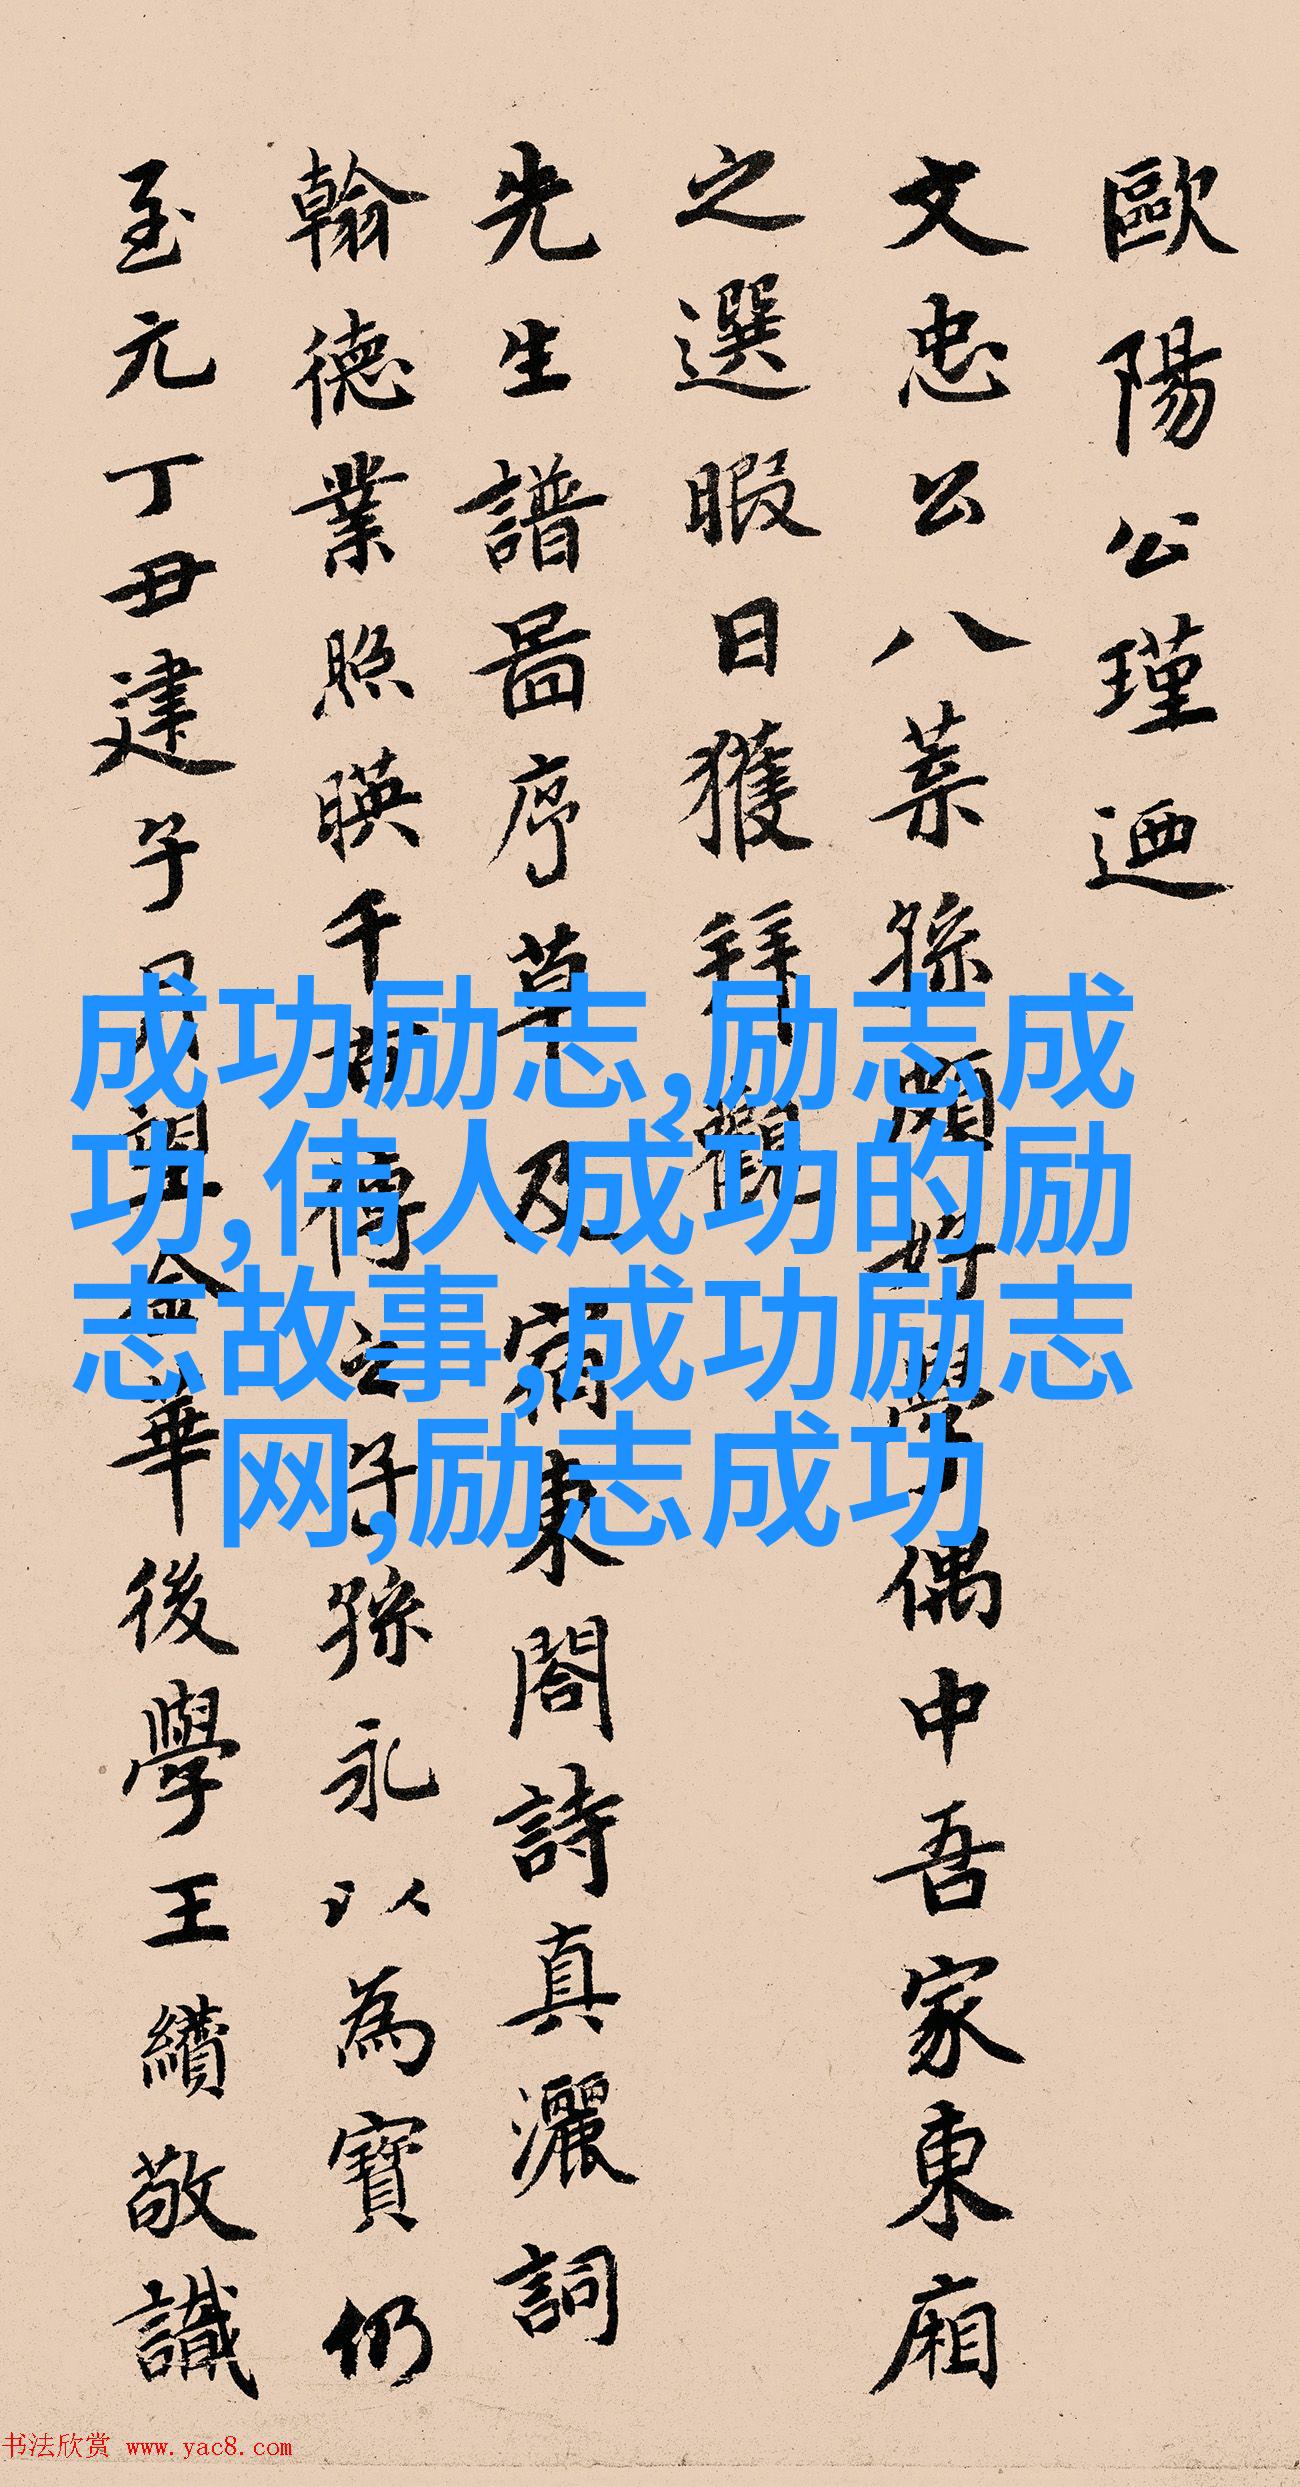 歐陽公瑾迺
文忠公八葉孫頗好學偶中吾家東廂
之選暇日獲拜觀
先生譜啚序草及宿東閤詩真灑詞
翰德業照暎千古傳之子孫永以為寶仍
至元丁丑建子月朢金華後學王績敬識
成功励志,励志成
功,伟人成功的励
志故事,成功励志
网,励志成功
书法欣赏 www.yac8.com